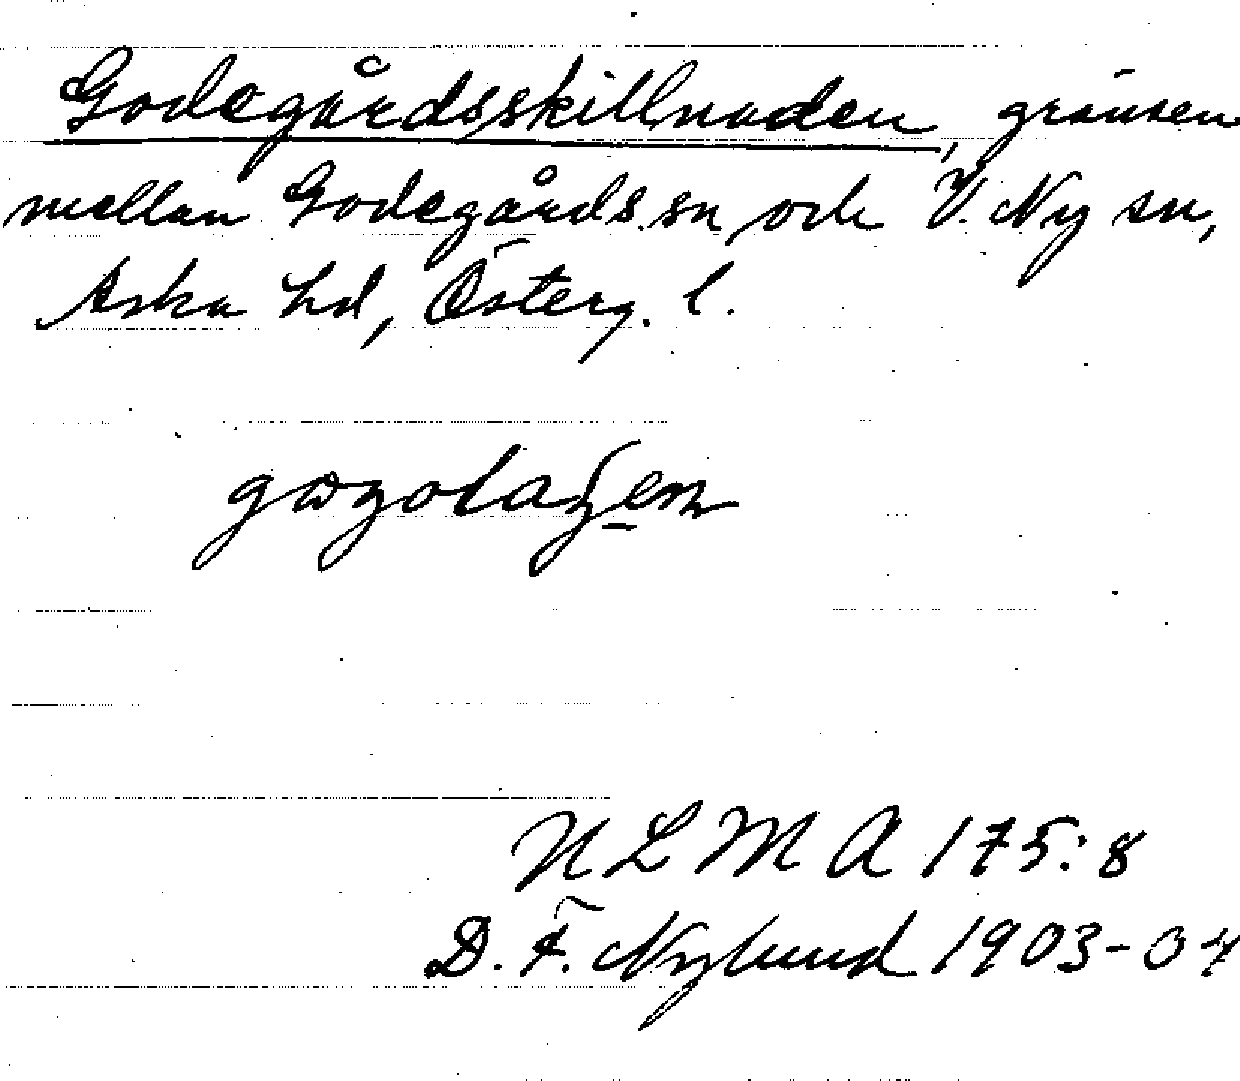 Godegårdsskillnaden, gränsen
mellan Godegårds sn och V. Ny sn,
Aska hd, Österg. l.
NLM A 175:8
D. F. Nylund 1903-04